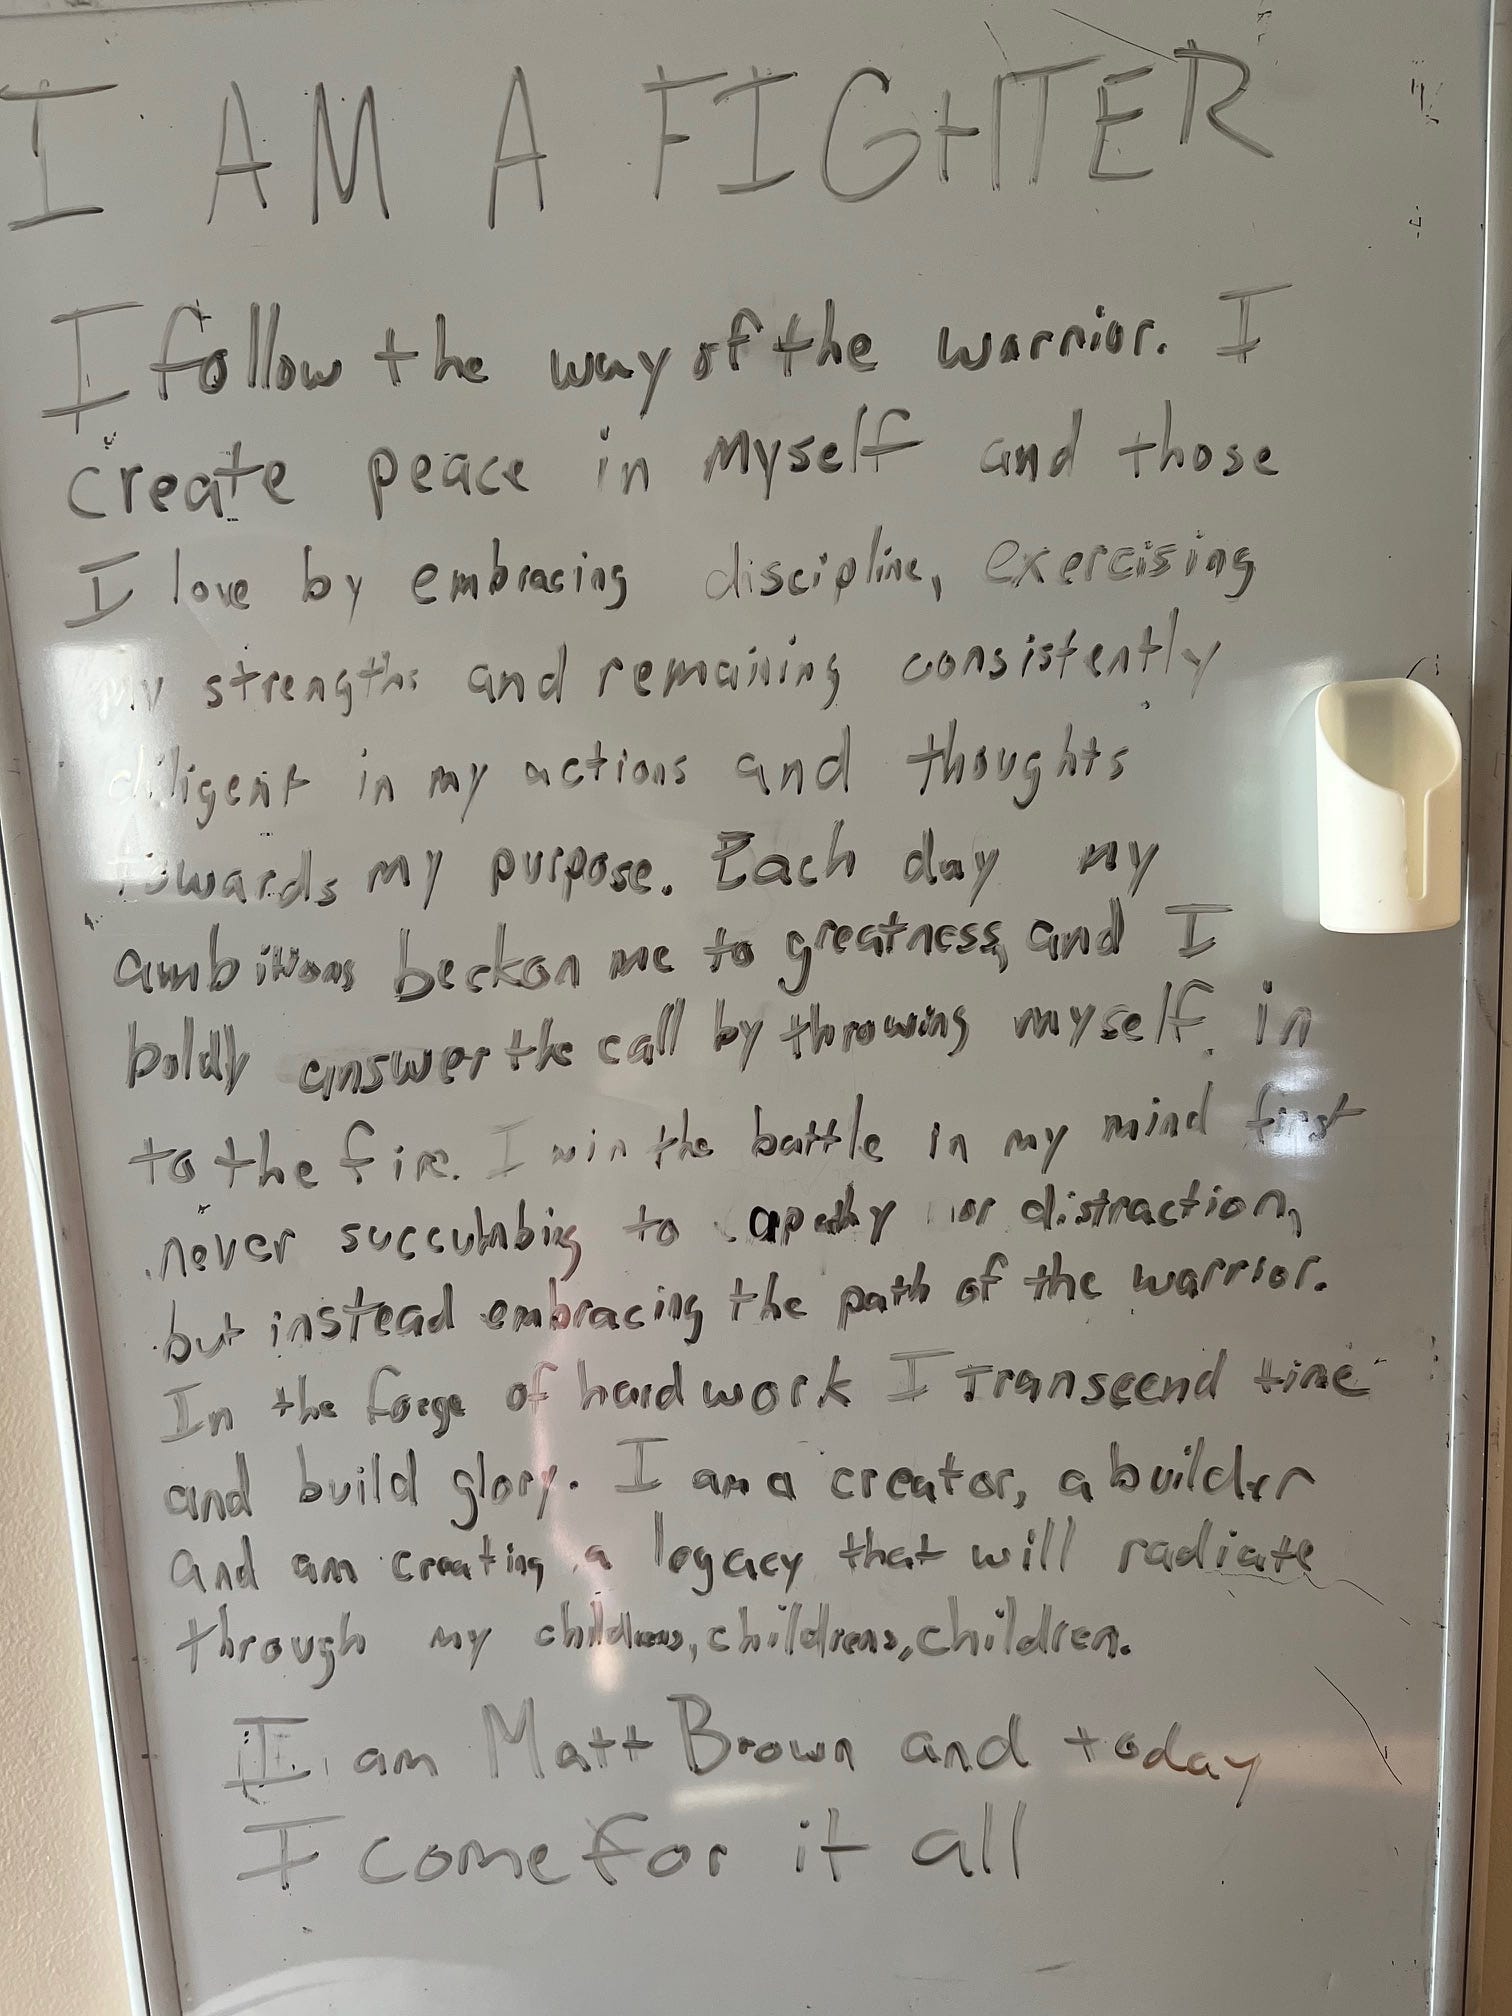 I AM A FIGHTER
I follow the way of the warrior. I
create peace in myself and those
I love by embracing discipline, exercising
my strengths and remaining consistently
diligent in my actions and thoughts
towards my purpose. Each day my
ambitions beckon me to greatness, and I
boldly answer the call by throwing myself in
to the fire. I win the battle in my mind first
never succumbing to apathy or distraction,
but instead embracing the path of the warrior.
In the forge of hard work I transcend time
and build glory. I am a creator, a builder
and am creating a legacy that will radiate
through my childrens, childrens, children.
I am Matt Brown and today
I come for it all